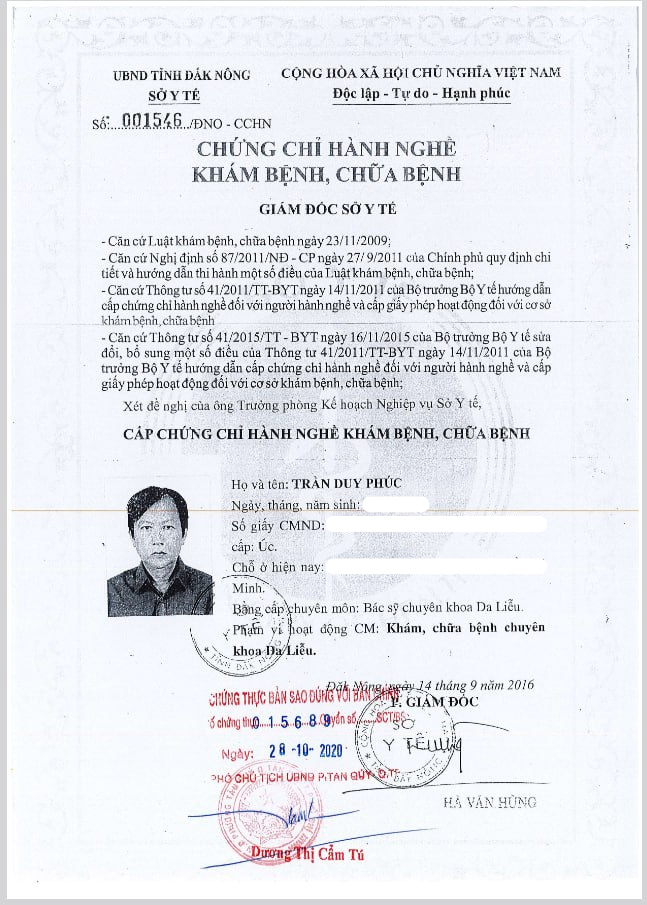 UBND TỈNH ĐĂK NÔNG
SỞ Y TẾ
CỘNG HÒA XÃ HỘI CHỦ NGHĨA VIỆT NAM
Độc lập - Tự do - Hạnh phúc
Số: 001546 /ĐNO - CCHN
CHỨNG CHỈ HÀNH NGHỀ
KHÁM BỆNH, CHỮA BỆNH
GIÁM ĐỐC SỞ Y TẾ
- Căn cứ Luật khám bệnh, chữa bệnh ngày 23/11/2009;
- Căn cứ Nghị định số 87/2011/NĐ - CP ngày 27/ 9/2011 của Chính phủ quy định chi
tiết và hướng dẫn thi hành một số điều của Luật khám bệnh, chữa bệnh;
- Căn cứ Thông tư số 41/2011/TT-BYT ngày 14/11/2011 của Bộ trưởng Bộ Y tế hướng dẫn
cấp chứng chỉ hành nghề đối với người hành nghề và cấp giấy phép hoạt động đối với cơ sở
khám bệnh, chữa bệnh
- Căn cứ Thông tư số 41/2015/TT - BYT ngày 16/11/2015 của Bộ trưởng Bộ Y tế sửa
đổi, bổ sung một số điều của Thông tư 41/2011/TT-BYT ngày 14/11/2011 của Bộ
trưởng Bộ Y tế hướng dẫn cấp chứng chỉ hành nghề đối với người hành nghề và cấp
giấy phép hoạt động đối với cơ sở khám bệnh, chữa bệnh;
Xét đề nghị của ông Trưởng phòng Kế hoạch Nghiệp vụ Sở Y tế,
CẤP CHỨNG CHỈ HÀNH NGHỀ KHÁM BỆNH, CHỮA BỆNH
Họ và tên: TRẦN DUY PHÚC
Ngày, tháng, năm sinh:
Số giấy CMND:
cấp: Úc.
Chỗ ở hiện nay:
Minh.
Bằng cấp chuyên môn: Bác sỹ chuyên khoa Da Liễu.
Phạm vi hoạt động CM: Khám, chữa bệnh chuyên
khoa Da Liễu.
Đăk Nông, ngày 14 tháng 9 năm 2016
P. GIÁM ĐỐC
SỞ
Y TẾ
TỈNH ĐĂK NÔNG
CHỨNG THỰC BẢN SAO ĐÚNG VỚI BẢN CHÍNH
Số chứng thực 015689 Quyển số SCT/BS
Ngày: 28 -10- 2020
PHÓ CHỦ TỊCH UBND P.TÂN QUÝ
HÀ VĂN HÙNG
Dương Thị Cẩm Tú